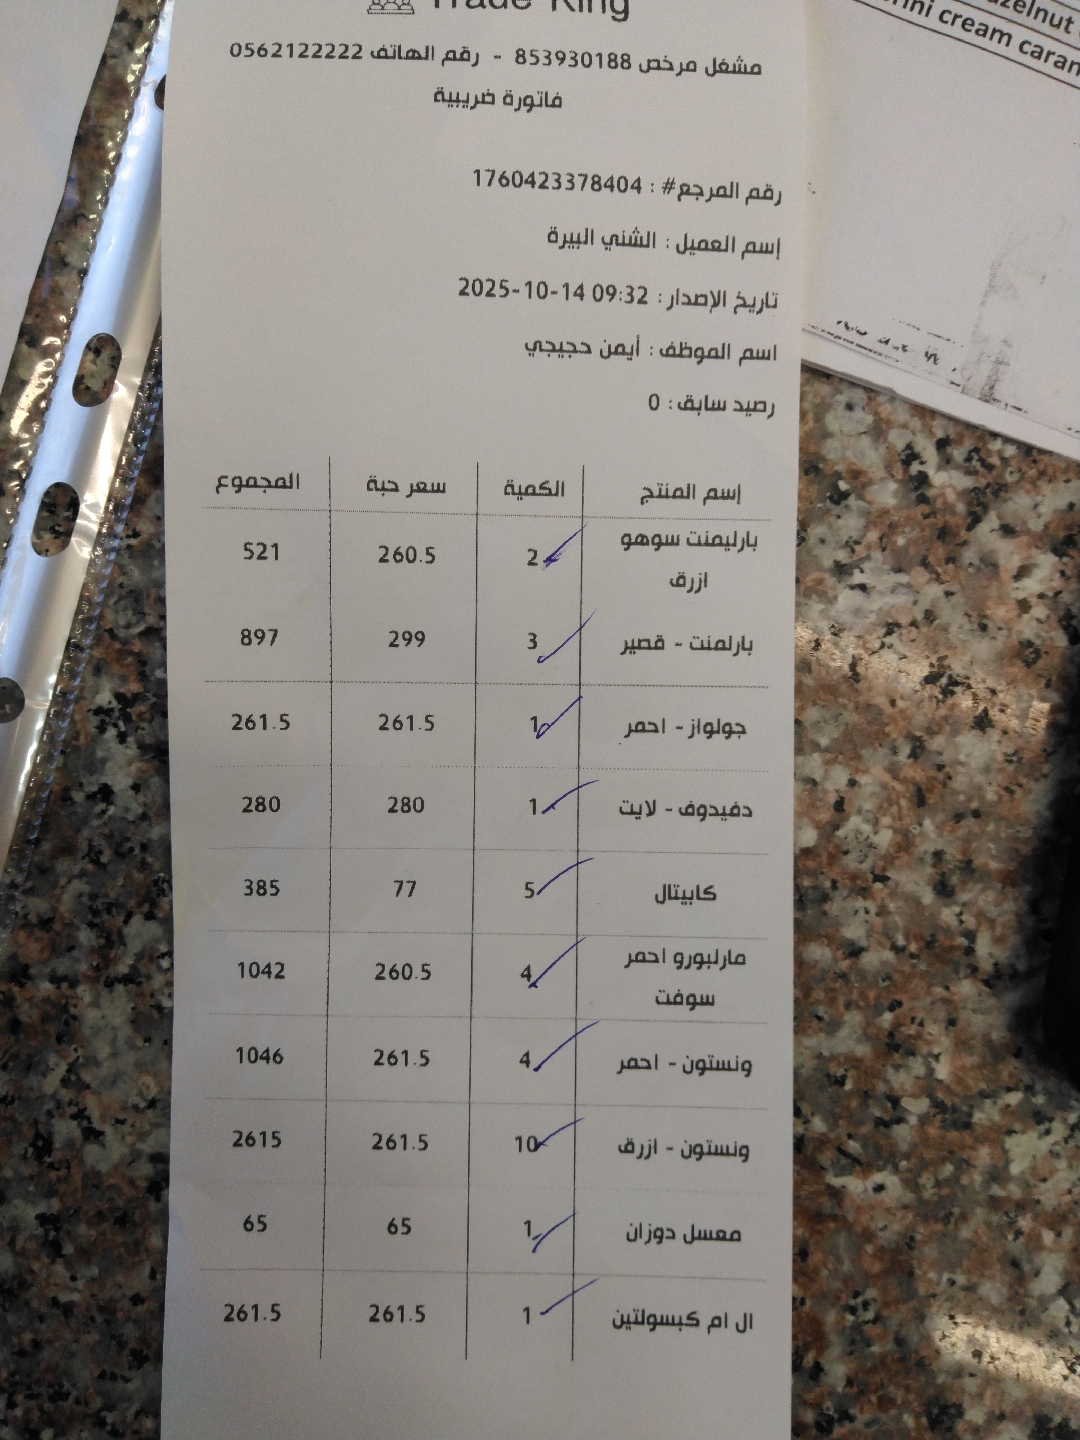 Trade King
مشغل مرخص 853930188 - رقم الهاتف 0562122222
فاتورة ضريبية
رقم المرجع# : 1760423378404
إسم العميل : الشني البيرة
تاريخ الإصدار : 2025-10-14 09:32
اسم الموظف : أيمن حجيجي
رصيد سابق : 0
إسم المنتج الكمية سعر حبة المجموع
بارليمنت سوهو ازرق 2 260.5 521
بارلمنت - قصير 3 299 897
جولواز - احمر 1 261.5 261.5
دفيدوف - لايت 1 280 280
كابيتال 5 77 385
مارلبورو احمر سوفت 4 260.5 1042
ونستون - احمر 4 261.5 1046
ونستون - ازرق 10 261.5 2615
معسل دوزان 1 65 65
ال ام كبسولتين 1 261.5 261.5
cream